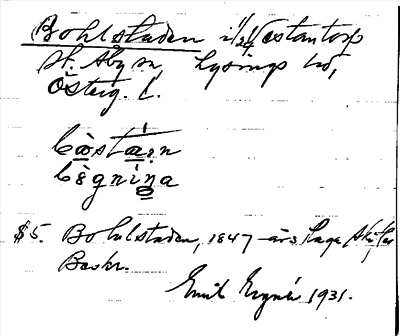 Bohlstaden i 1/24 Östantorp
St. Åby sn, Lysings hd,
Österg. l.
bòstàn
bègnina
$5. Bohlstaden, 1847 års Laga Skifte,
Beskr.
Emil 1931.